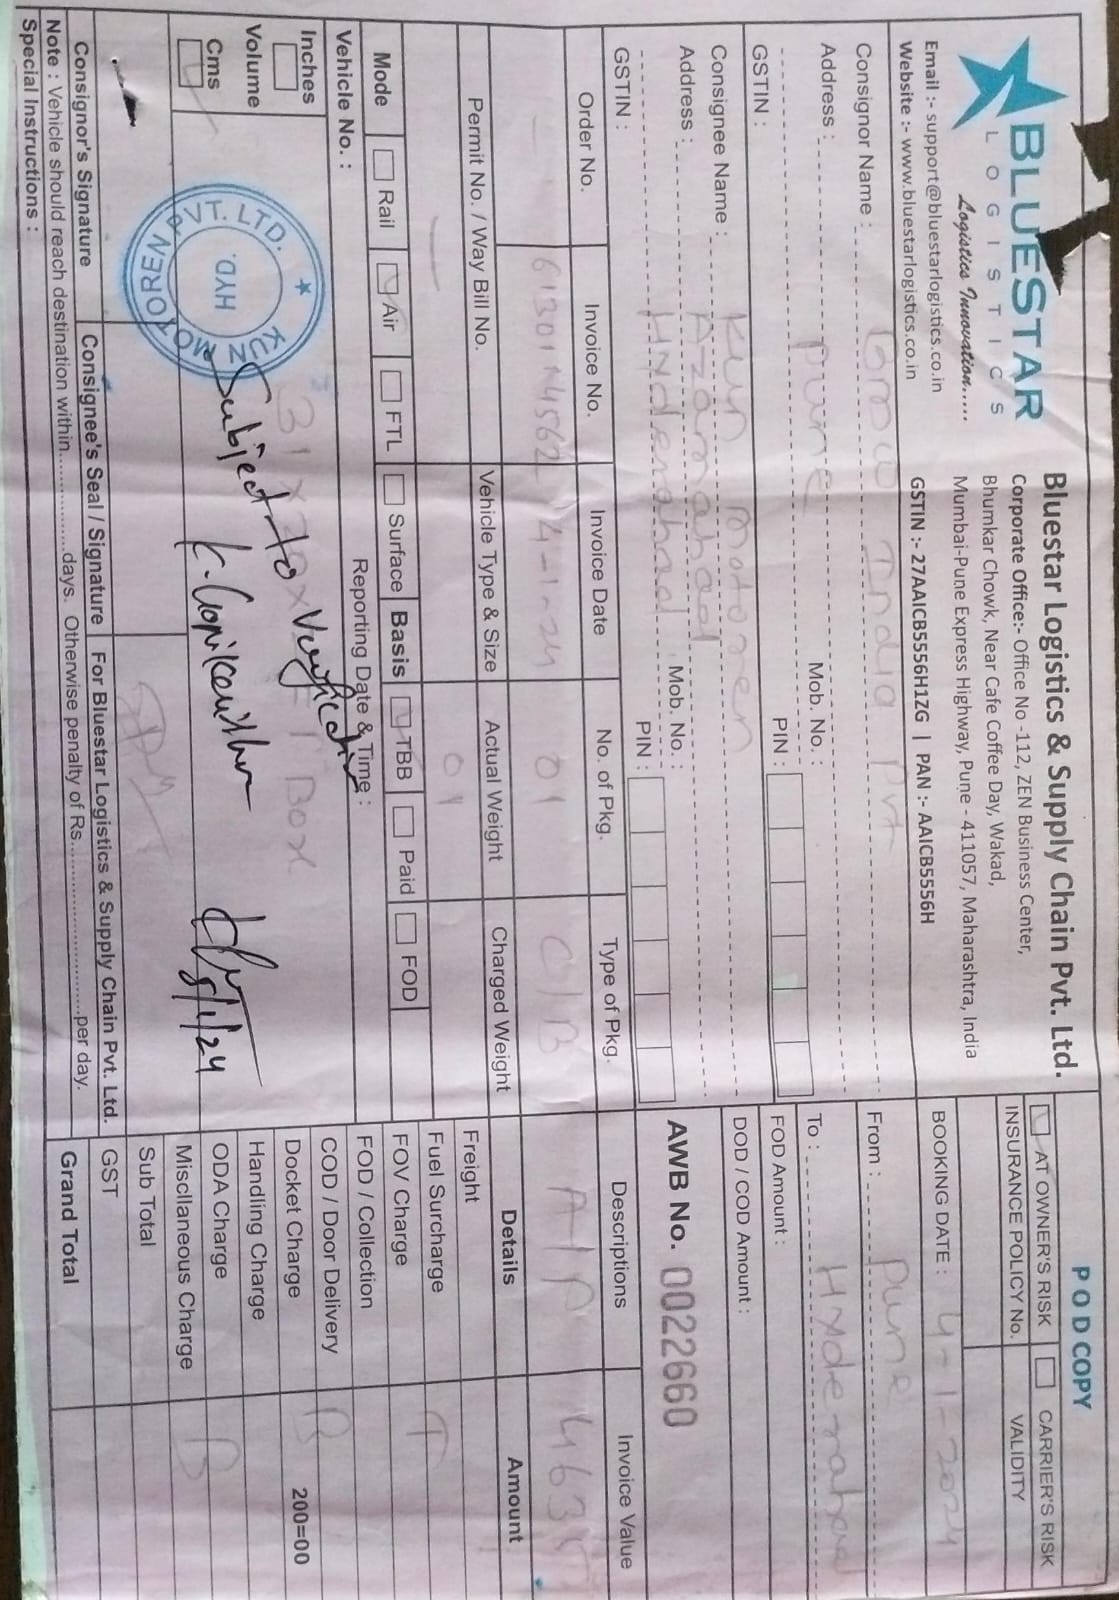 BLUESTAR
LOGISTICS
Logistics Innovation.....
Email :- support@bluestarlogistics.co.in
Website :- www.bluestarlogistics.co.in
Bluestar Logistics & Supply Chain Pvt. Ltd.
Corporate Office:- Office No -112, ZEN Business Center,
Bhumkar Chowk, Near Cafe Coffee Day, Wakad,
Mumbai-Pune Express Highway, Pune - 411057, Maharashtra, India
GSTIN :- 27AAICB5556H1ZG | PAN :- AAICB5556H
POD COPY
AT OWNER'S RISK CARRIER'S RISK
INSURANCE POLICY No. VALIDITY
BOOKING DATE : 4-1-2024
From : Pune
To : Hyderabad
FOD Amount :
DOD / COD Amount :
AWB No. 0022660
Consignor Name : BMW India Pvt
Address : Pune
Mob. No. :
PIN :
GSTIN :
Consignee Name : Kun Motoren
Address : Azamabad
Hyderabad
Mob. No. :
PIN :
GSTIN :
Order No. Invoice No. Invoice Date No. of Pkg. Type of Pkg. Descriptions Invoice Value
— 6130114562 4-1-24 01 C/B A/P 4635
Permit No. / Way Bill No. Vehicle Type & Size Actual Weight Charged Weight
— 01
Mode Rail Air FTL Surface Basis TBB Paid FOD
Vehicle No. : Reporting Date & Time :
Inches
Volume
Cms
1 Box
Subject to Verification
K. Gopikrishna
5/1/24
KUN MOTOREN PVT. LTD.
HYD.
Details Amount
Freight
Fuel Surcharge T
FOV Charge
FOD / Collection
COD / Door Delivery B
Docket Charge 200=00
Handling Charge
ODA Charge B
Miscllaneous Charge
Sub Total
GST
Grand Total
Consignor's Signature Consignee's Seal / Signature For Bluestar Logistics & Supply Chain Pvt. Ltd.
Note : Vehicle should reach destination within..................days. Otherwise penalty of Rs..............................per day.
Special Instructions :